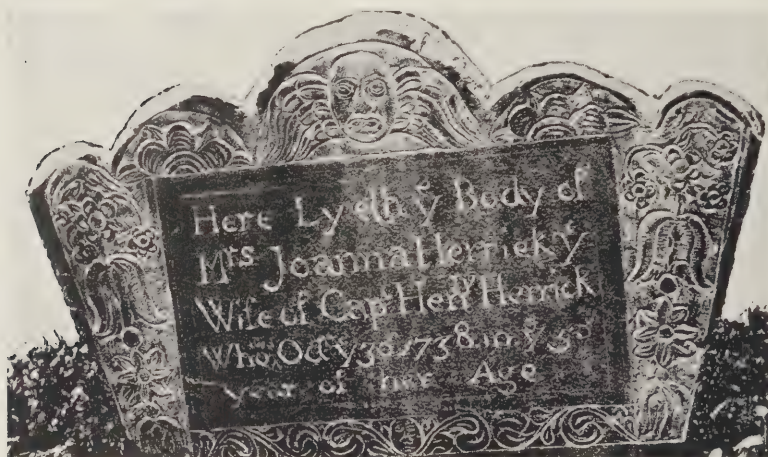 Here Lyeth yᵉ Body of
Mrs Joanna Herrick yᵉ
Wife of Capᵗ Henʳʸ Herrick
Who Octʳ yᵉ 30 1738 in yᵉ 50
year of her Age